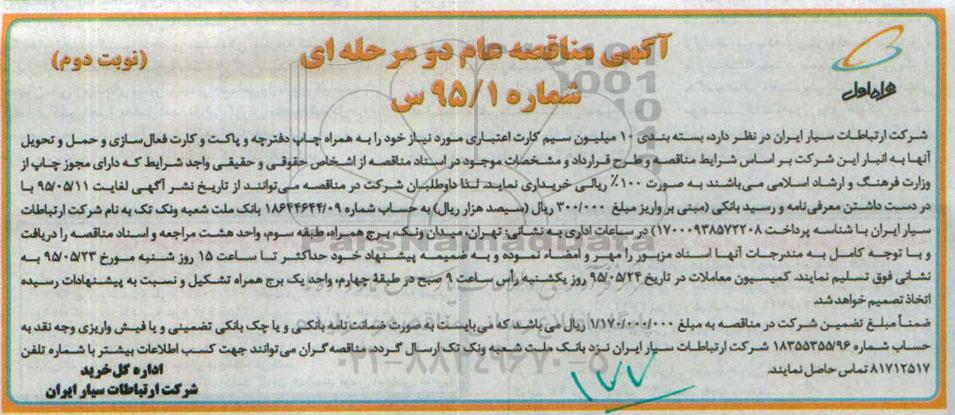 آگهی مناقصه عام دو مرحله ای
(نوبت دوم)
شماره ۹۵/۱ س
همراه اول
شرکت ارتباطات سیار ایران در نظر دارد، بسته بندی ۱۰ میلیون سیم کارت اعتباری مورد نیاز خود را به همراه چاپ دفترچه و پاکت و کارت فعال‌سازی و حمل و تحویل
آنها به انبار این شرکت بر اساس شرایط مناقصه و طرح قرارداد و مشخصات موجود در اسناد مناقصه از اشخاص حقوقی و حقیقی واجد شرایط که دارای مجوز چاپ از
وزارت فرهنگ و ارشاد اسلامی می‌باشند به صورت ۱۰۰٪ ریالی خریداری نماید. لذا داوطلبان شرکت در مناقصه می‌توانند از تاریخ نشر آگهی لغایت ۹۵/۰۵/۱۱ با
در دست داشتن معرفی‌نامه و رسید بانکی (مبنی بر واریز مبلغ ۳۰۰/۰۰۰ ریال (سیصد هزار ریال) به حساب شماره ۱۸۶۴۴۶۴۴/۰۹ بانک ملت شعبه ونک تک به نام شرکت ارتباطات
سیار ایران با شناسه پرداخت ۱۷۰۰۰۹۳۸۵۷۲۲۰۸) در ساعات اداری به نشانی: تهران، میدان ونک، برج همراه، طبقه سوم، واحد هشت مراجعه و اسناد مناقصه را دریافت
و با توجه کامل به مندرجات آنها اسناد مزبور را مهر و امضاء نموده و به ضمیمه پیشنهاد خود حداکثر تا ساعت ۱۵ روز شنبه مورخ ۹۵/۰۵/۲۳ به
نشانی فوق تسلیم نمایند. کمیسیون معاملات در تاریخ ۹۵/۰۵/۲۴ روز یکشنبه رأس ساعت ۹ صبح در طبقهٔ چهارم، واحد یک برج همراه تشکیل و نسبت به پیشنهادات رسیده
اتخاذ تصمیم خواهد شد.
ضمناً مبلغ تضمین شرکت در مناقصه به مبلغ ۱/۱۷۰/۰۰۰/۰۰۰ ریال می‌باشد که می‌بایست به صورت ضمانت نامه بانکی و یا چک بانکی تضمینی و یا فیش واریزی وجه نقد به
حساب شماره ۱۸۳۵۵۳۵۵/۹۶ شرکت ارتباطات سیار ایران نزد بانک ملت شعبه ونک تک ارسال گردد. مناقصه گران می‌توانند جهت کسب اطلاعات بیشتر با شماره تلفن
۸۱۷۱۲۵۱۷ تماس حاصل نمایند.
اداره کل خرید
شرکت ارتباطات سیار ایران
ParsNamadData
۰۲۱-۸۸۳۴۹۶۷۰-۵
۱۷۷